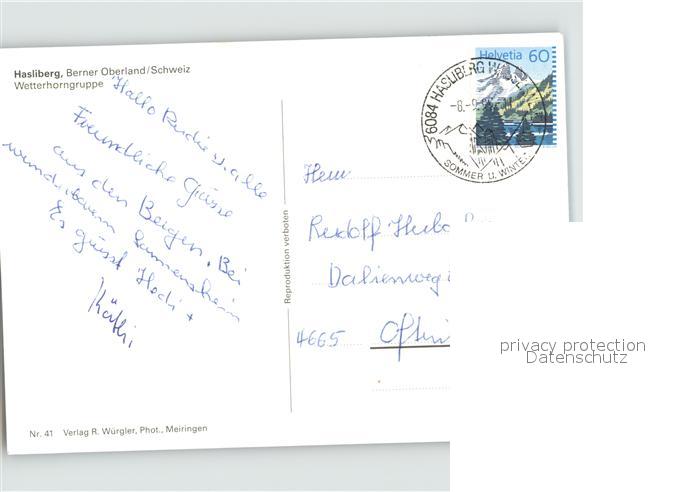 Hasliberg, Berner Oberland/Schweiz
Wetterhorngruppe
Hallo Ruedi
Freundliche Grüsse
aus den Bergen. Bei
wunderbarem Sonnenschein
Es grüsst Hedi +
Käthi,
Reproduktion verboten
Helvetia 60
6084 HASLIBERG
SOMMER U. WINTE
Herrn
Rudolf
Dalienweg
4665 Oftrin
privacy protection
Datenschutz
Nr. 41 Verlag R. Würgler, Phot., Meiringen